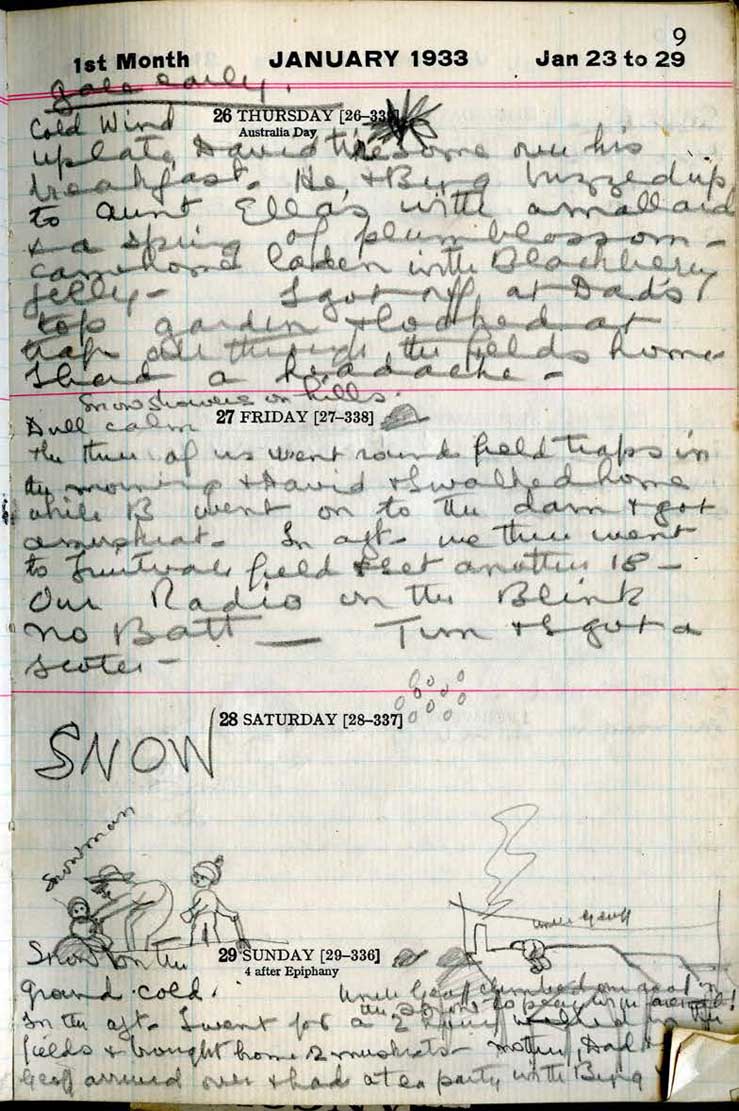 9
1st Month JANUARY 1933 Jan 23 to 29
gale early.
Cold Wind 26 THURSDAY [26-339]
Australia Day
up late, David tiresome over his
breakfast. He, & Bing buzzed up
to Aunt Ella's with a mallard
& a sprig of plum blossom -
came home laden with Blackberry
jelly - I got off at Dad's
top garden & looked at
traps all through the fields home
I had a headache -
Snow showers on hills.
Dull calm 27 FRIDAY [27-338]
The three of us went round field traps in
the morning & David & I walked home
while B went on to the dam & got
a muskrat. In aft. we three went
to field & set another 18 -
Our Radio on the Blink
no Batt — Tim & I got a
scoter -
28 SATURDAY [28-337]
SNOW
Snowman
Uncle Geoff
Snow on the 29 SUNDAY [29-336]
4 after Epiphany
ground. cold.
Uncle Geoff climbed on roof in
the to
In the aft. I went for a 2 walked in the
fields & brought home 2 muskrats - mother, Dad &
Geoff arrived over & had a tea party with Bing